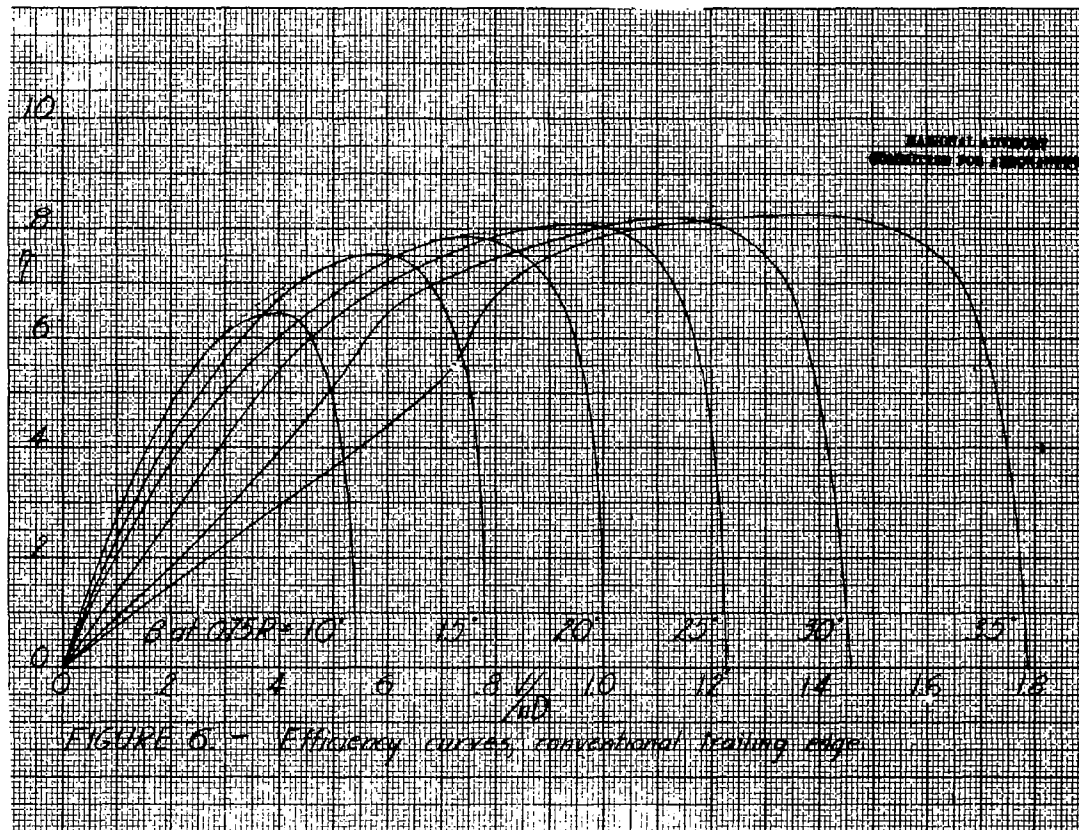 1.0
NATIONAL ADVISORY
COMMITTEE FOR AERONAUTICS
.8
η
.6
.4
.2
β at 0.75R = 10° 15° 20° 25° 30° 35°
0
0 .2 .4 .6 .8 V/nD 1.0 1.2 1.4 1.6 1.8
FIGURE 6.- Efficiency curves, conventional trailing edge